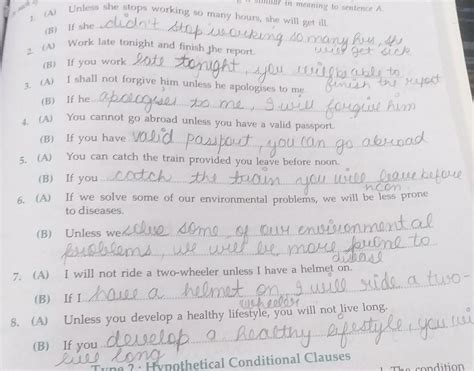 is similar in meaning to sentence A.
1. (A) Unless she stops working so many hours, she will get ill.
(B) If she didn't stop working so many hrs, she
will get sick
2. (A) Work late tonight and finish the report.
(B) If you work late tonight, you will be able to
finish the report
3. (A) I shall not forgive him unless he apologises to me.
(B) If he apologises to me, I will forgive him
4. (A) You cannot go abroad unless you have a valid passport.
(B) If you have valid passport, you can go abroad
5. (A) You can catch the train provided you leave before noon.
(B) If you catch the train you will leave before
noon.
6. (A) If we solve some of our environmental problems, we will be less prone
to diseases.
(B) Unless we solve some of our environmental
problems, we will be more prone to
disease
7. (A) I will not ride a two-wheeler unless I have a helmet on.
(B) If I have a helmet on, I will ride a two-
wheeler
8. (A) Unless you develop a healthy lifestyle, you will not live long.
(B) If you develop a healthy lifestyle, you will
live long
Type 2: Hypothetical Conditional Clauses
1. The condition